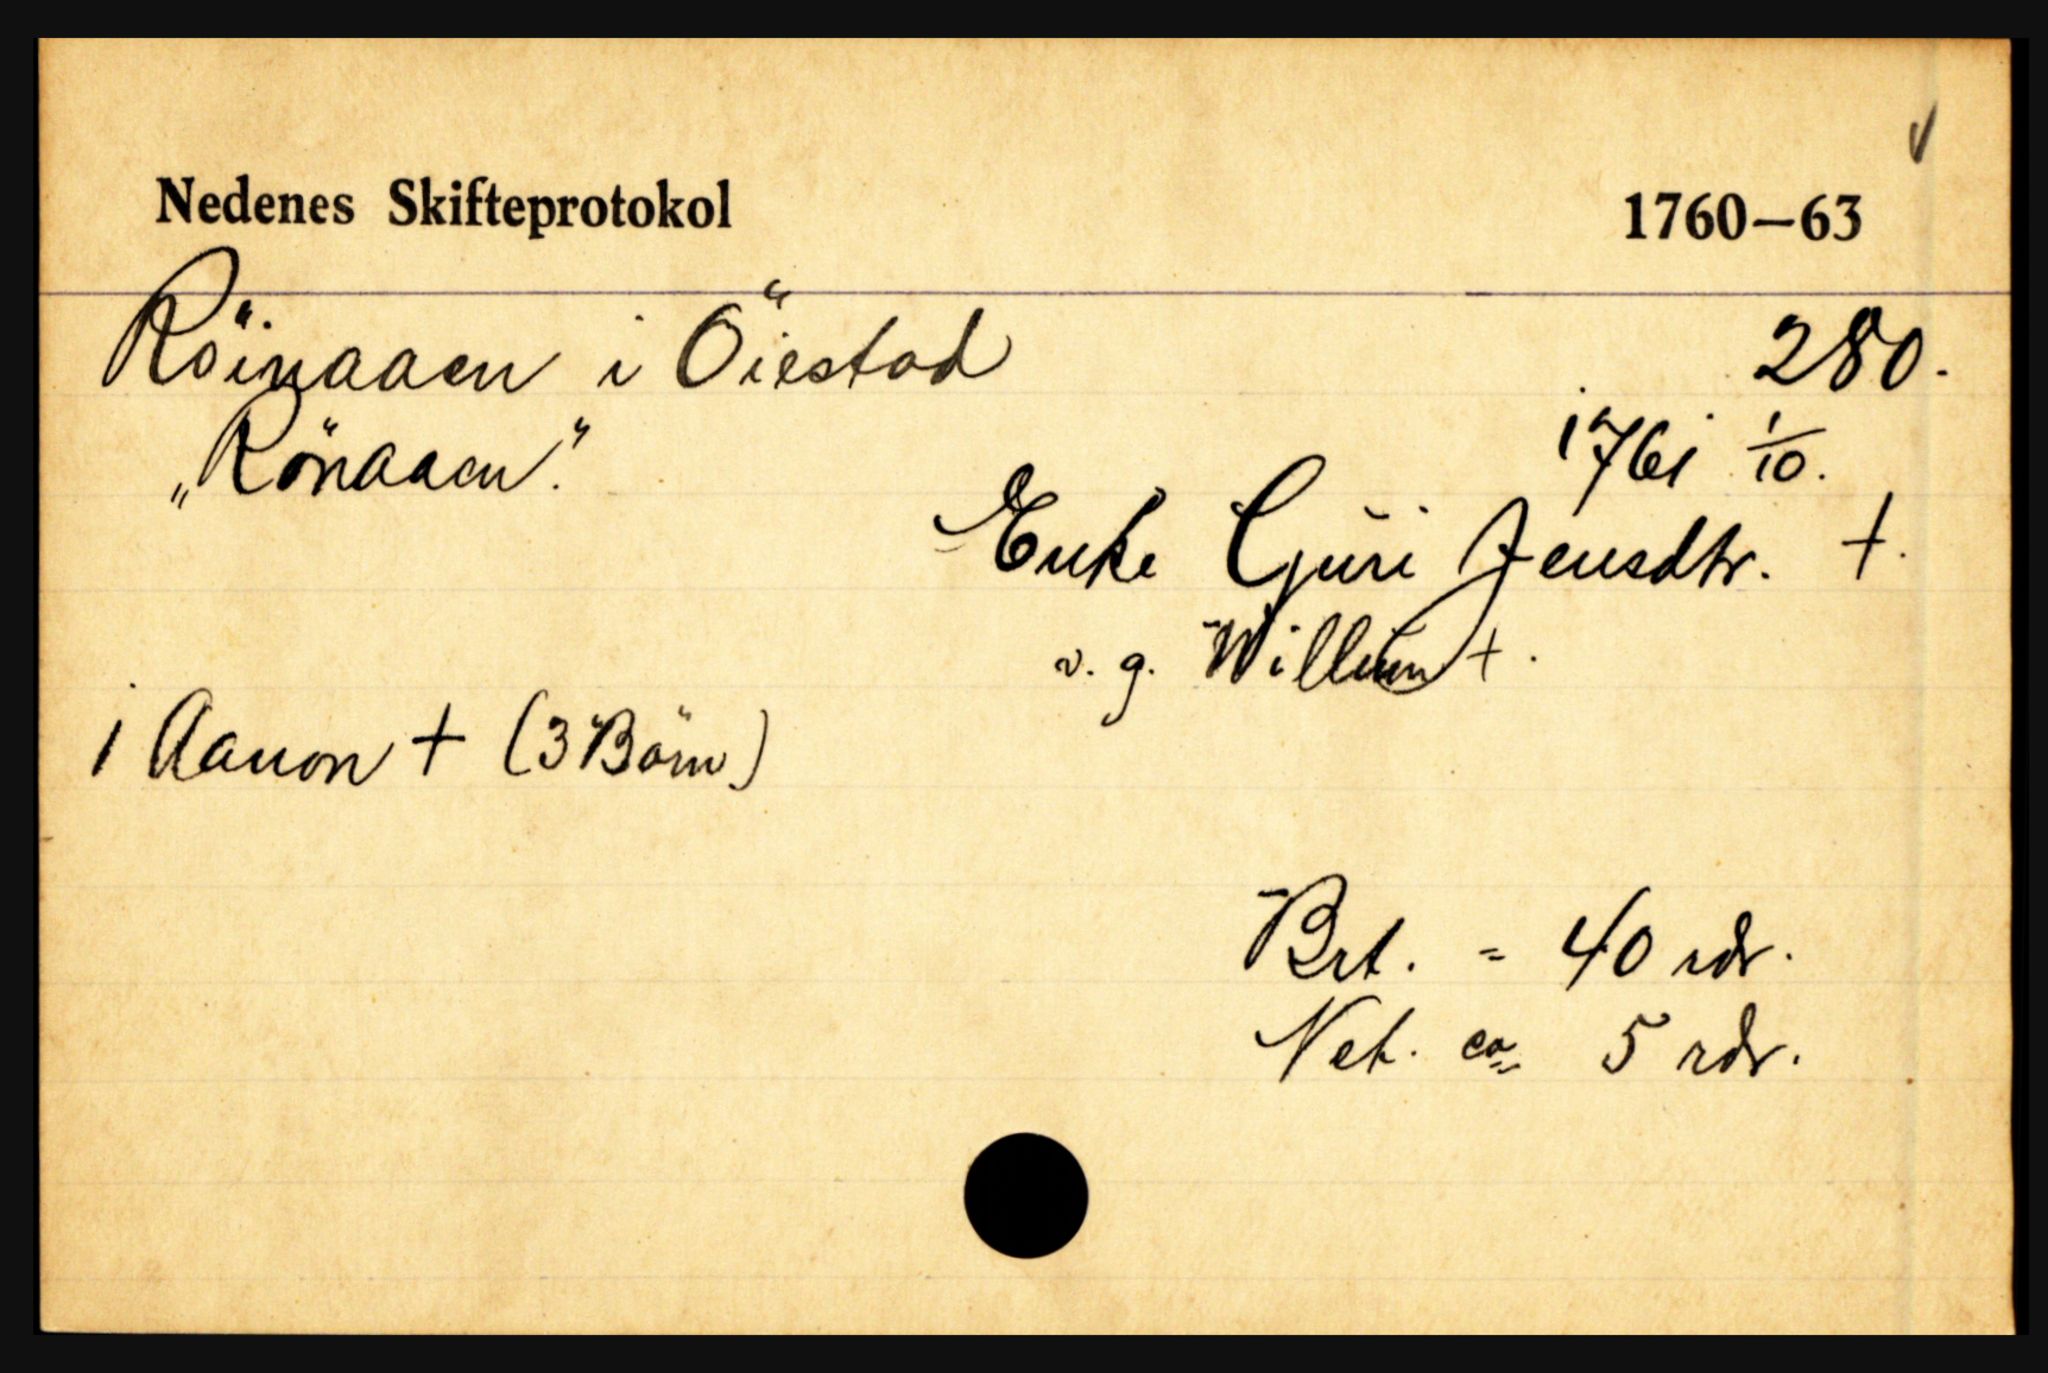 Nedenes Skifteprotokol 1760—63
Röinaaen i Öiestad 280.
„Rönaaen." 1761 1/10.
Enke Guri Jensdtr. +.
v. g. Willum +.
1 Aanon + (3 Börn)
Brt. = 40 rdr.
Net. ca = 5 rdr.